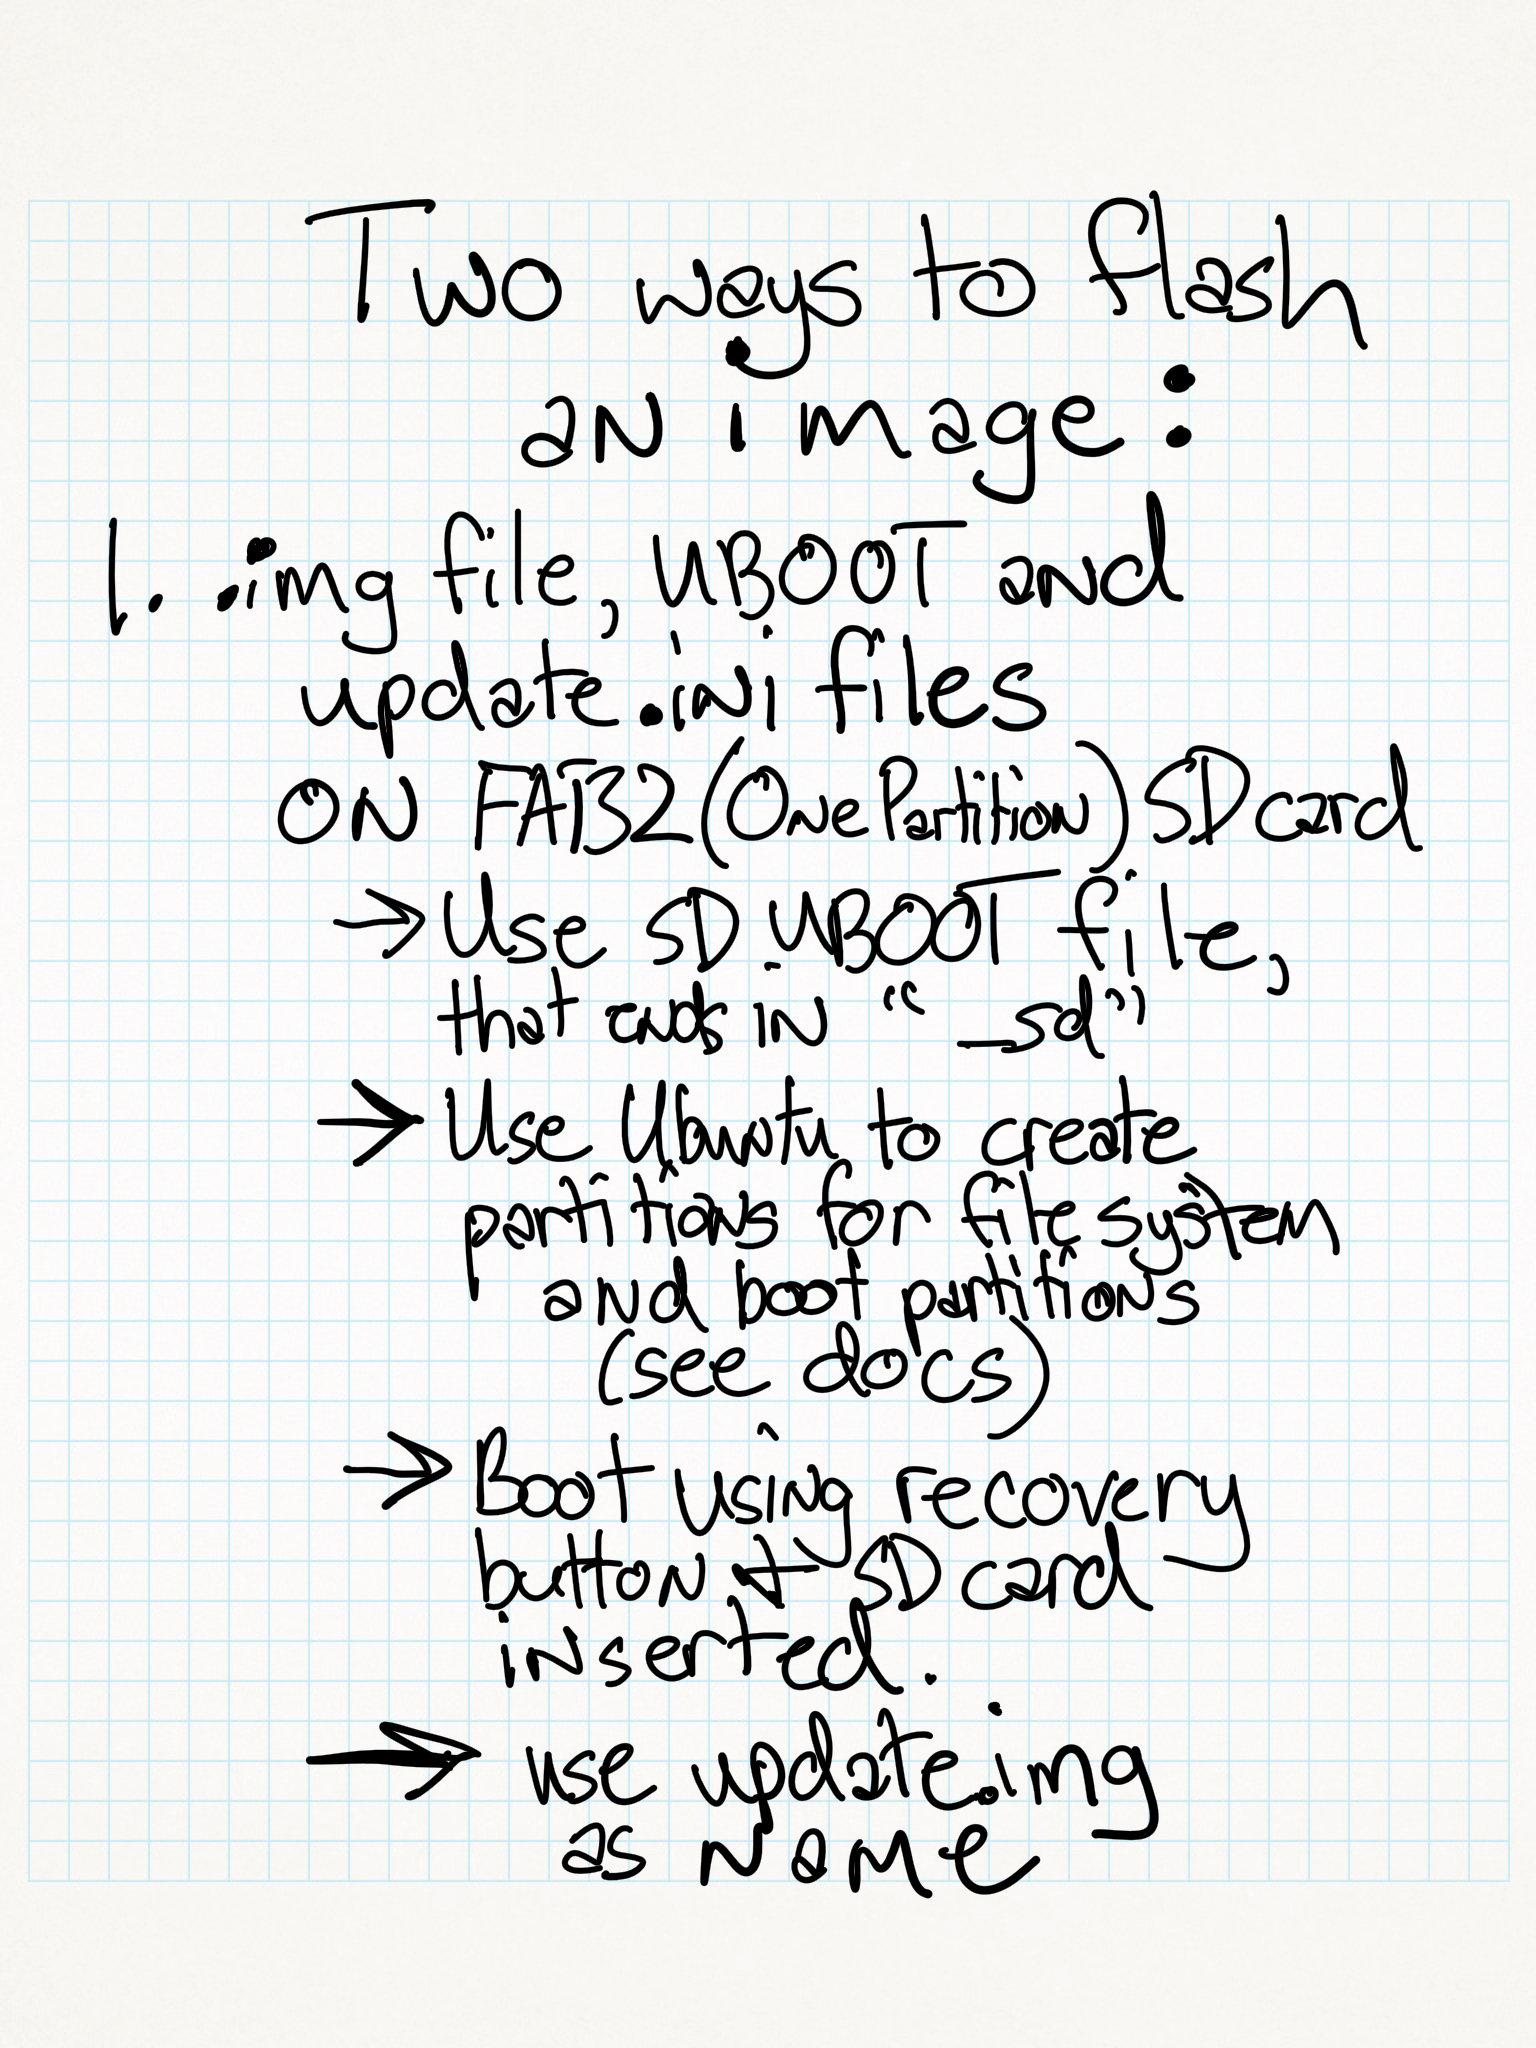 Two ways to flash
an image:
1. .img file, UBOOT and
update.ini files
on FAT32 (One Partition) SD card
→ Use SD UBOOT file,
that ends in "_sd"
→ Use Ubuntu to create
partitions for file system
and boot partitions
(see docs)
→ Boot using recovery
button + SD card
inserted.
→ use update.img
as name